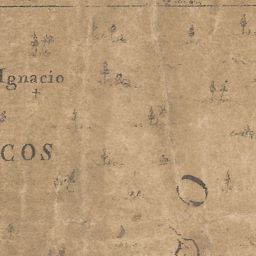 Ignacio
COS